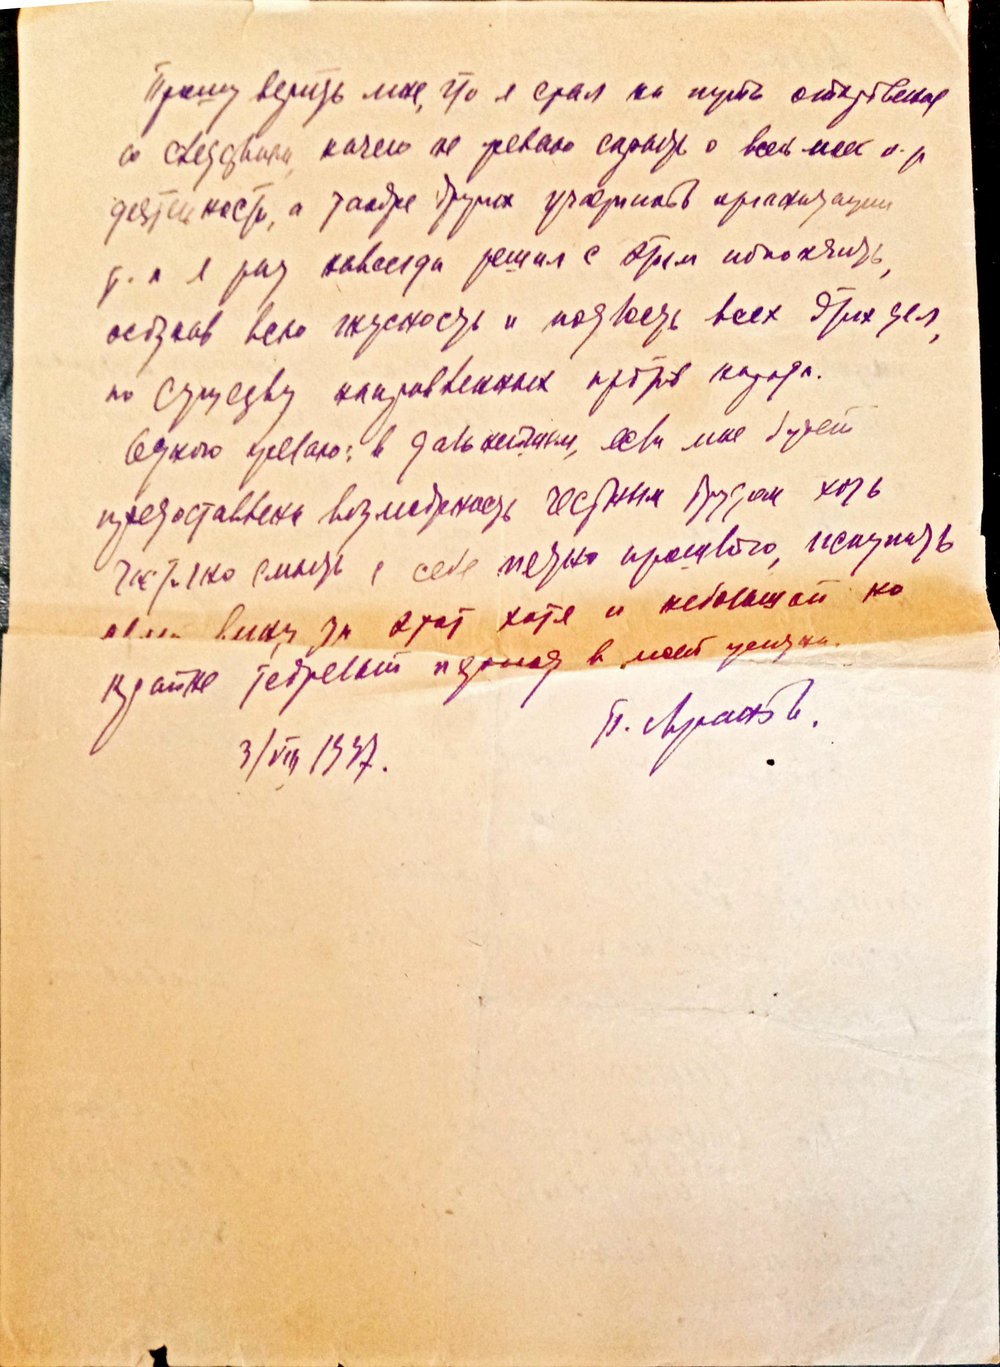 Прошу верить мне, что я стал на путь откровенное
со следствием, ничего не желаю скрыть о всей моей к.-р
деятельности, а также других участников организации
т. к я раз навсегда решил с этим покончить,
осознав всю гнусность и подлость всех этих дел,
по существу направленных против народа.
Одного желаю: в дальнейшем, если мне будет
предоставлена возможность честным трудом хоть
частично смыть с себя пятно прошлого, искупить
вину за этот хотя и небольшой но
крайне тяжелый период в моей жизни.
3/VIII 1937.